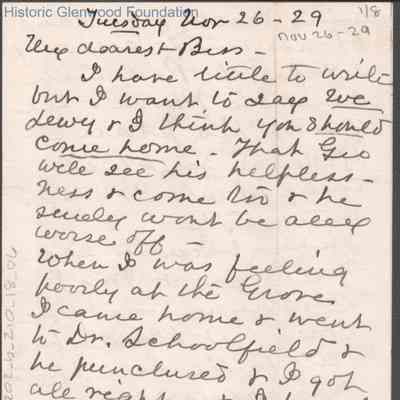 Historic Glenwood Foundation
1/8
Tuesday Nov 26 - 29
Nov 26 - 29
My dearest Bess -
I have little to write
but I want to say We
Lewy & I think you should
come home. That Geo
will see his helpless-
ness & come too & he
surely wont be any
worse off -
When I was feeling
poorly at the Grove
I came home & went
to Dr. Schoolfield &
he punctured & I got
all right